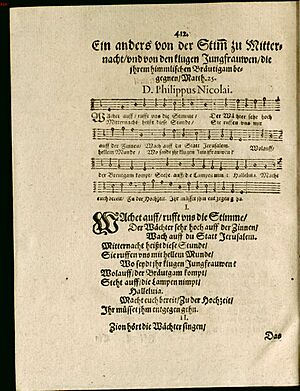 412.
Ein anders von der Stim̃ zu Mitter-
nacht/vnd von den klugen Jungfrauwen/die
jhrem himmlischen Bräutigam be-
gegnen/Matth.25.
D. Philippus Nicolai.
WAchet auff/ rufft vns die Stimme/ Der Wächter sehr hoch
Mitternacht heißt diese Stunde/ Sie ruffen vns mit
auff der Zinnen/ Wach auff du Statt Jerusalem.
hellem Munde/ Wo seydt jhr klugen Jungfrauwen? Wolauff/
der Breutgam kompt/ Steht auff/ die Lampen nim̃t/ Halleluia. Macht
euch bereit/ Zu der Hochzeit/ Ihr müsset jhm entgegen gehn.
I.
WAchet auff/ rufft vns die Stimme/
Der Wächter sehr hoch auff der Zinnen/
Wach auff du Statt Jerusalem.
Mitternacht heißt diese Stunde/
Sie ruffen vns mit hellem Munde/
Wo seydt jhr klugen Jungfrauwen?
Wolauff/ der Bräutgam kompt/
Steht auff/ die Lampen nimpt/
Halleluia.
Macht euch bereit/ Zu der Hochzeit/
Ihr müsset jhm entgegen gehn.
II.
Zion hört die Wächter singen/
Das